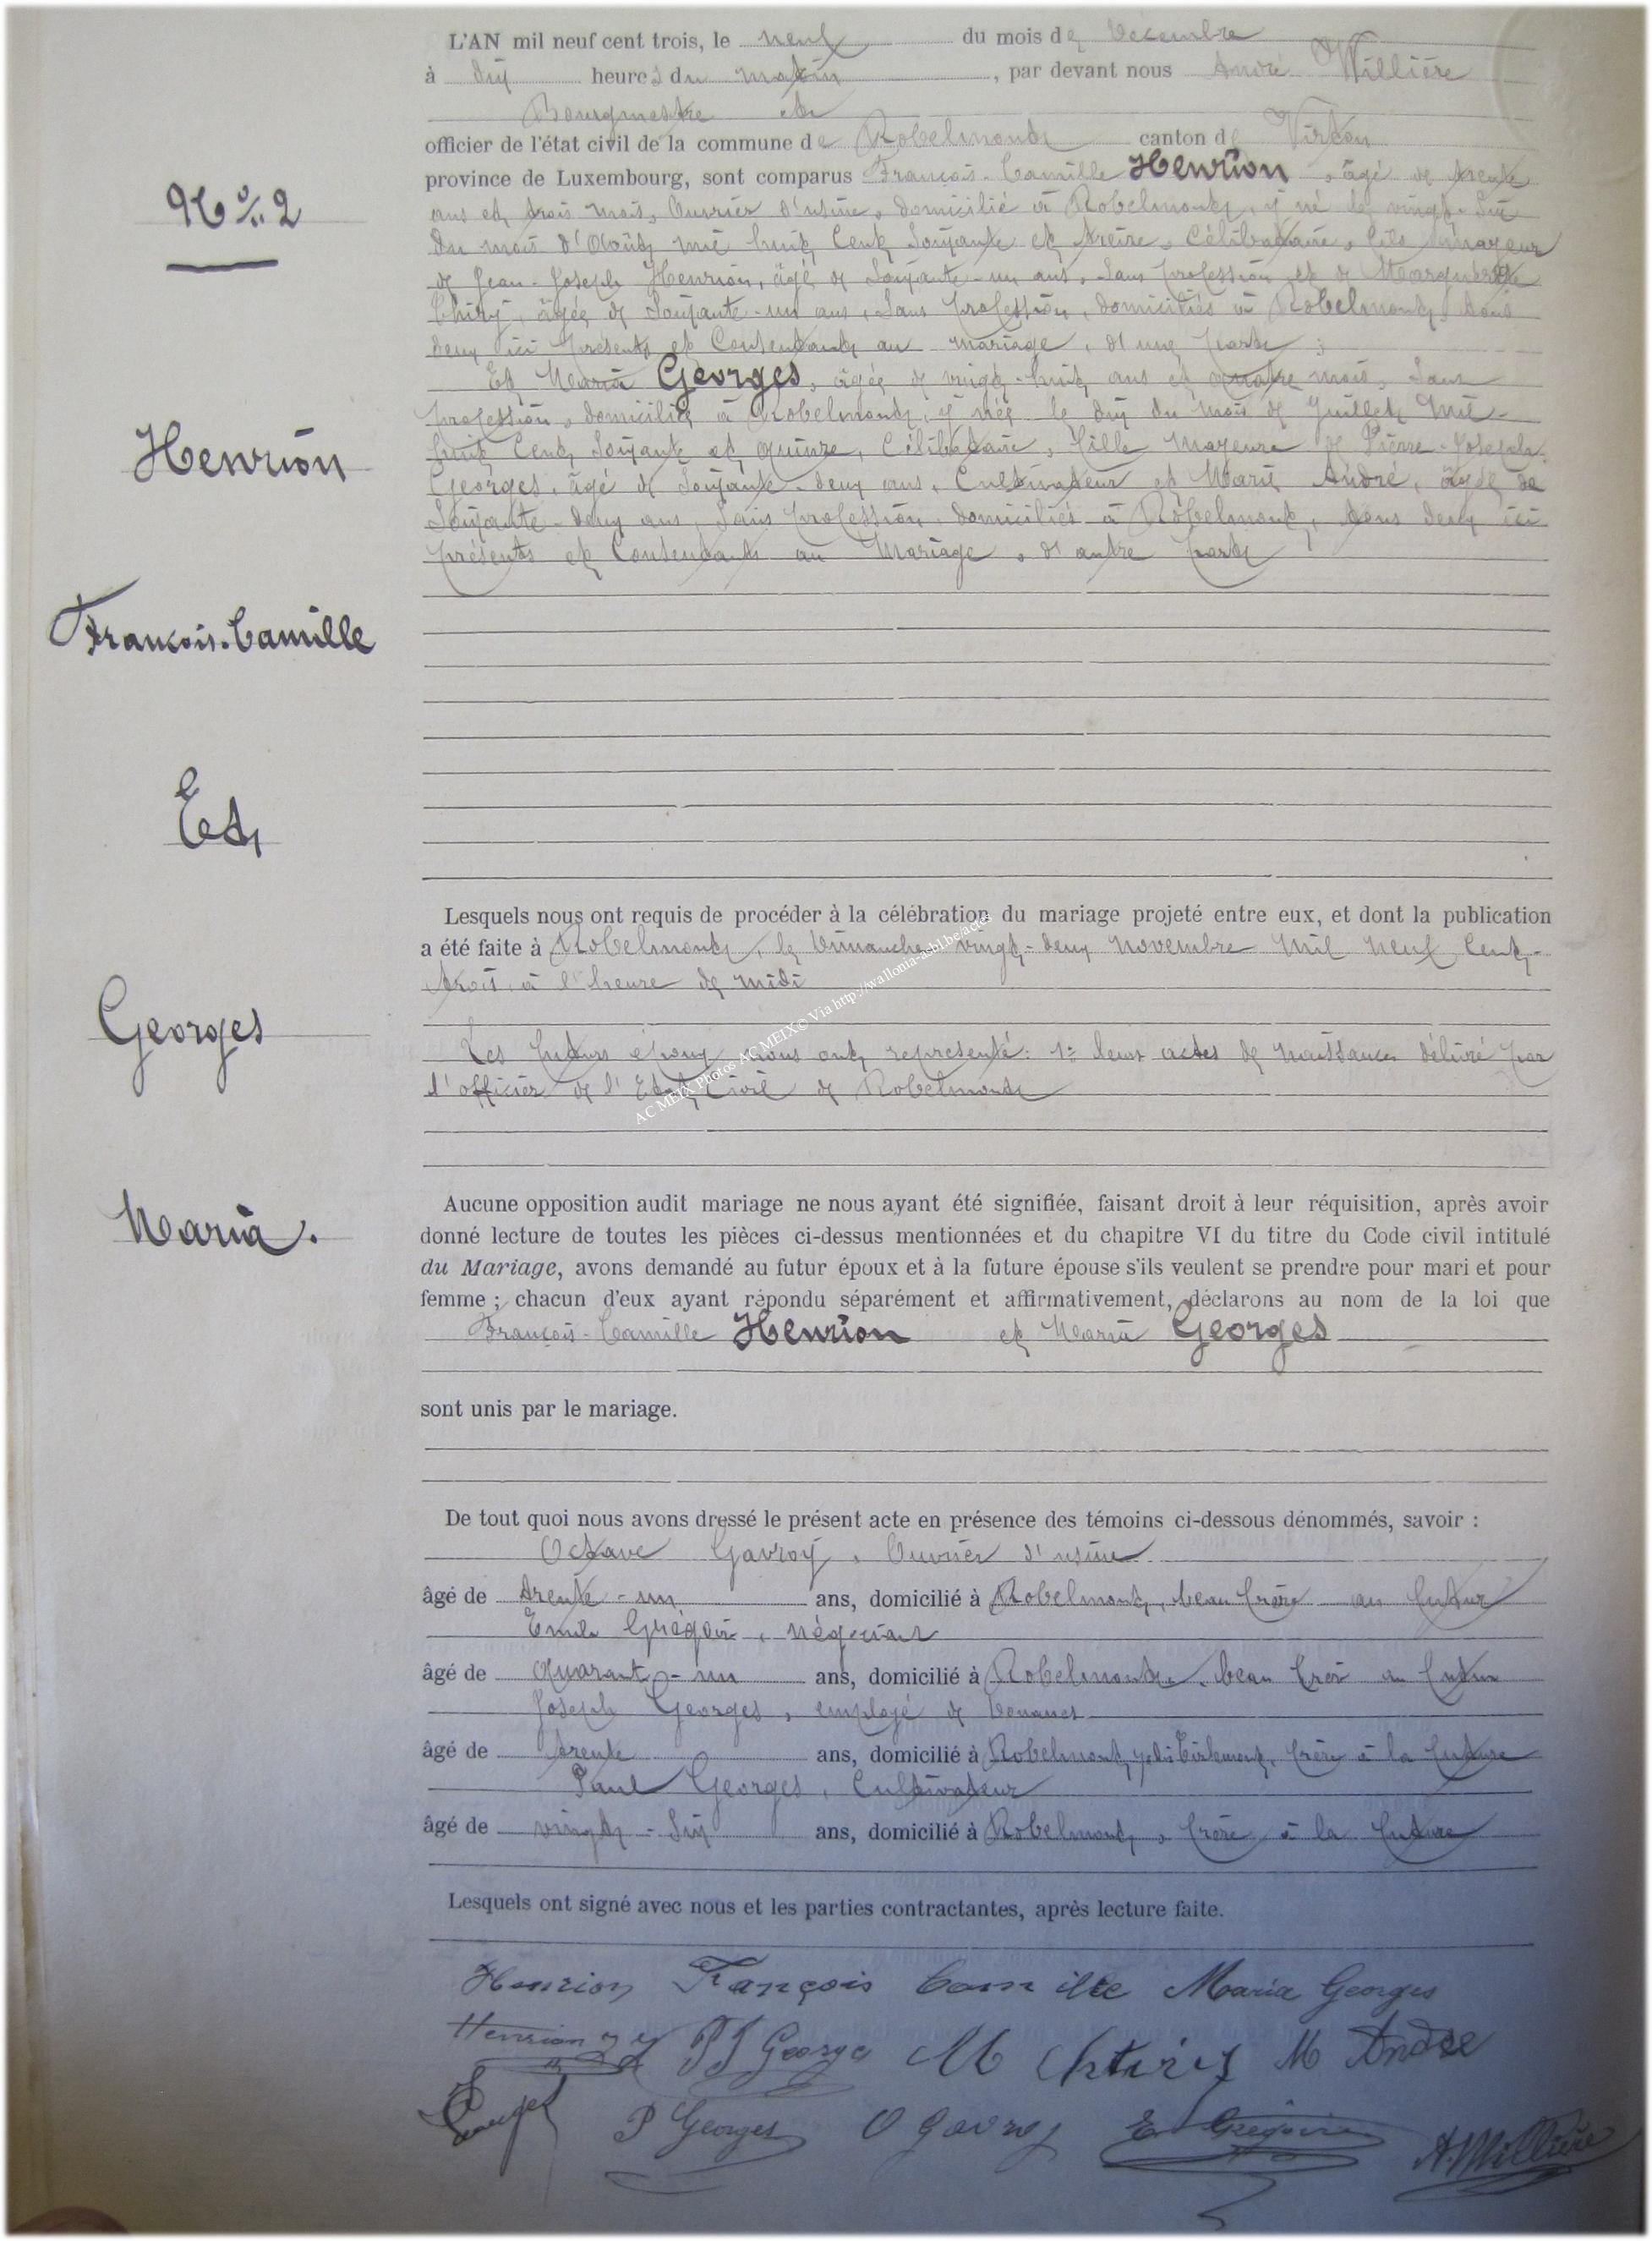 L'AN mil neuf cent trois, le neuf du mois de Décembre
à dix heures du matin, par devant nous André Willière
Bourgmestre
officier de l'état civil de la commune de Robelmont canton de Virton
province de Luxembourg, sont comparus François-Camille Henrion, âgé de trente
ans et trois mois, Ouvrier d'usine, domicilié à Robelmont, y né le vingt-six
du mois d'Août mil huit Cent Soixante et treize, Célibataire, fils majeur
de Jean-Joseph Henrion, âgé de Soixante-un ans, Sans profession et de Marguerite
Thiry, âgée de Soixante-un ans, Sans profession, domiciliés à Robelmont, tous
deux ici présents et Consentants au mariage, d'une part ;
Et Maria Georges, âgée de vingt-huit ans et quatre mois, Sans
profession, domiciliée à Robelmont, y née le dix du mois de Juillet Mil-
huit Cent Soixante et quinze, Célibataire, fille Mayeure de Pierre-Joseph-
Georges, âgé de Soixante-deux ans, Cultivateur et Marie André, âgée de
Soixante-deux ans, Sans profession, domiciliés à Robelmont, tous deux ici
présents et Consentants au Mariage, d'autre part
N° 2
Henrion
François-Camille
Et
Georges
Maria.
Lesquels nous ont requis de procéder à la célébration du mariage projeté entre eux, et dont la publication
a été faite à Robelmont, le Dimanche vingt-deux Novembre Mil Neuf Cent-
trois, à l'heure de midi
Les futurs époux nous ont représenté: 1° leurs actes de naissance délivré par
l'officier de l'Etat Civil de Robelmont
AC MEIX Photos AC MEIX © Via http://wallonia-asbl.be/actes
Aucune opposition audit mariage ne nous ayant été signifiée, faisant droit à leur réquisition, après avoir
donné lecture de toutes les pièces ci-dessus mentionnées et du chapitre VI du titre du Code civil intitulé
du Mariage, avons demandé au futur époux et à la future épouse s'ils veulent se prendre pour mari et pour
femme ; chacun d'eux ayant répondu séparément et affirmativement, déclarons au nom de la loi que
François-Camille Henrion et Maria Georges
sont unis par le mariage.
De tout quoi nous avons dressé le présent acte en présence des témoins ci-dessous dénommés, savoir :
Octave Gavroy, Ouvrier d'usine
âgé de trente-un ans, domicilié à Robelmont, beau frère au futur
Emile Grégoire, négociant
âgé de Quarante-un ans, domicilié à Robelmont, beau frère au futur
Joseph Georges, employé de
âgé de trente ans, domicilié à Robelmont, Tirlemont, frère à la future
Paul Georges, Cultivateur
âgé de vingt-six ans, domicilié à Robelmont, frère à la future
Lesquels ont signé avec nous et les parties contractantes, après lecture faite.
Henrion François Camille Maria Georges
Henrion J J P J George M thiry M André
P Georges O Gavroy E Grégoire A. Willière